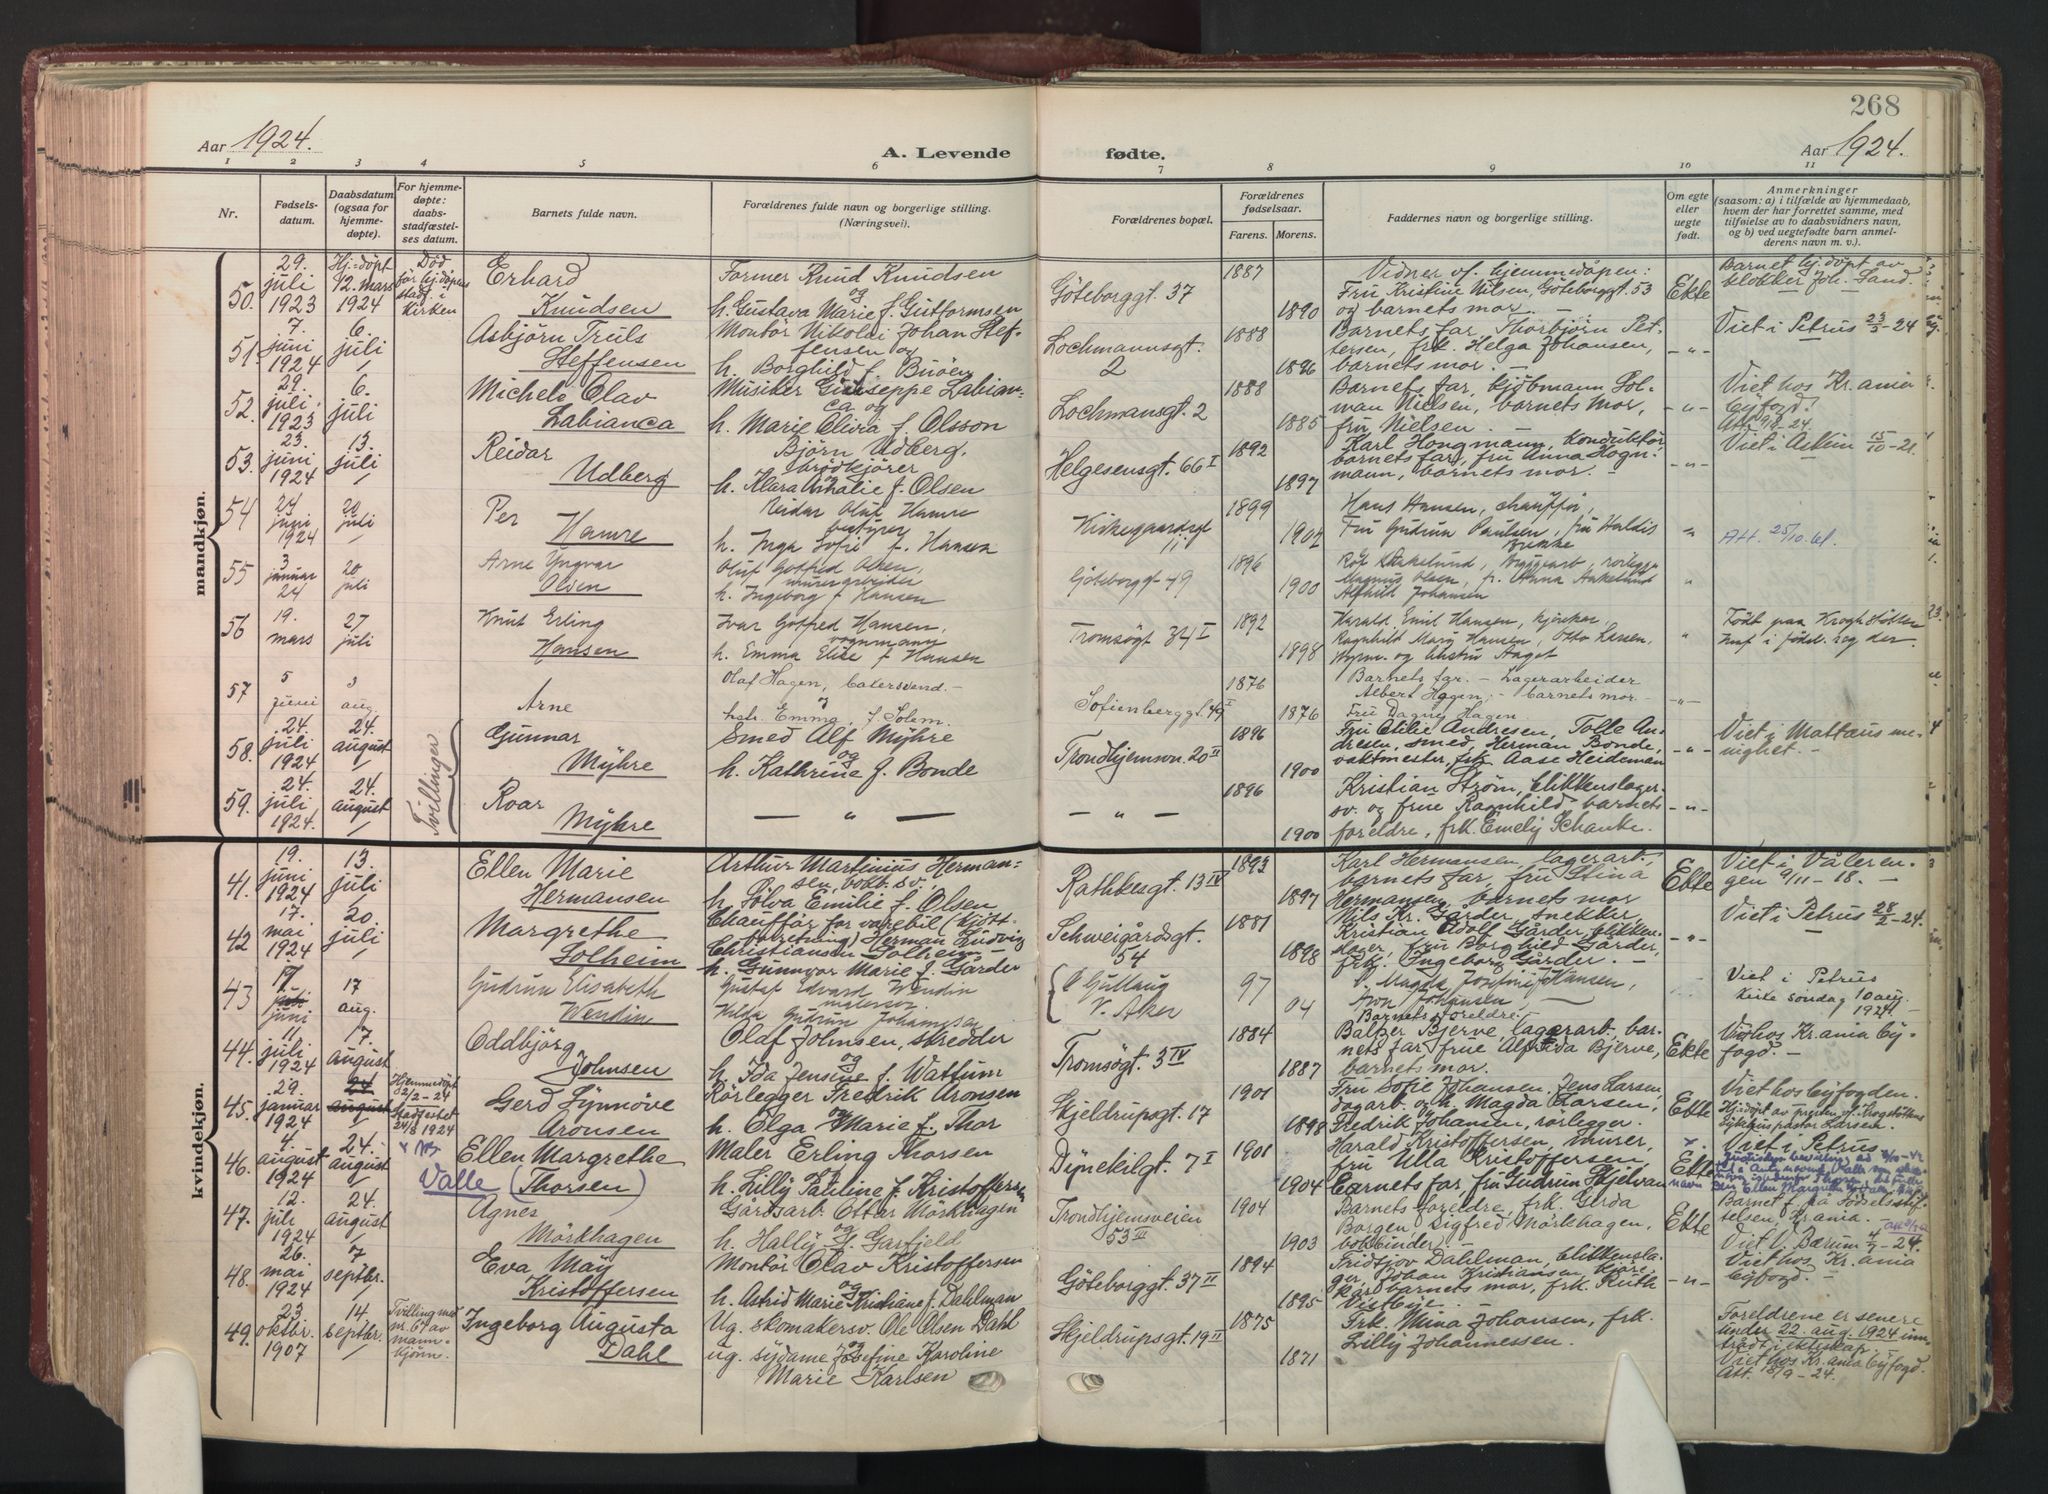 268
Aar 1924.
A. Levende
fødte.
Aar 1924.
1 2 3 4 5 6 7 8 9 10 11
Nr.
Fødsels-
datum.
Daabsdatum
(ogsaa for
hjemme-
døpte).
For hjemme-
døpte:
daabs-
stadfæstel-
ses datum.
Barnets fulde navn.
Forældrenes fulde navn og borgerlige stilling.
(Næringsvei).
Forældrenes bopæl.
Forældrenes
fødselsaar.
Farens. Morens.
Faddernes navn og borgerlige stilling.
Om egte
eller
uegte
født.
Anmerkninger
(saasom: a) i tilfælde av hjemmedaab,
hvem der har forrettet samme, med
tilføielse av to daabsvidners navn,
og b) ved uegtefødte barn anmel-
derens navn m. v.).
mandkjøn.
50. 29. juli 1923
Hj.døpt 12. mars 1924
Død før hj.dåpen stadf. i kirken
Erhard
Knudsen
Former Knud Knudsen
og
h. Gustava Marie f. Guttormsen
Göteborggt. 37
1887
1890
Vidner v. hjemmedåpen:
Fru Kristine Nilsen, Göteborggt. 53
og barnets mor. —
Ekte
Barnet hj. døpt av
blokker Joh. Sand.
51. 7. juni 1924
6. juli
Asbjörn Truls
Steffensen
Montör Nikolai Johan Stef-
fensen og
h. Borghild f. Buöen
Lochmannsgt.
2
1888
1896
Barnets far, Thorbjörn Pet-
tersen, frk. Helga Johansen,
barnets mor. —
— " —
Viet i Petrus 23/3-24
52. 29. juli 1923
6. juli
Michele Olav
Labianca
Musiker Guiseppe Labian-
ca og
h. Marie Elvira f. Olsson
Lochmansgt. 2
1888
1885
Barnets far, kjöbmann Sol-
man Nielsen, barnets mor,
fru Nielsen. —
— " —
Viet hos Kr.ania
Byfogd.
53. 23. juni 1924
13. juli
Reidar
Udberg
Björn Udberg,
brödkjörer
h. Klara Amalie f. Olsen
Helgesensgt. 66 I
1892
1897
Karl Hongmann, konduktör,
barnets far, fru Anna Hogn-
mann, barnets mor. —
— " —
Viet i Askim 15/10-21.
54 24 juni 1924
20 juli
Per
Hamre
Reidar Oluf Hamre
bestyrer
h. Inga Sofie f. Hansen
Kirkegaardsgt
11
1899
1902
Hans Hansen, chaufför,
Fru Gudrun Paulsen, fru Haldis
"
Att. 25/10.61.
55 3 januar 24
20 juli
Arne Yngvar
Olsen
Oluf Gotfred Olsen,
murerarbeider
h. Ingeborg f. Hansen
Göteborggt 49
1896
1900
Magnus Olsen, fr. Anna
Alfhild Johansen
"
56 19. mars
27 juli
Knut Erling
Hansen
Ivar Gotfred Hansen,
vognmann
h. Emma Elise f. Hansen
Tromsögt 34 I
1892
1898
Harald Emil Hansen, kjörekar,
Ragnhild Marg Hansen, Otto Larsen,
"
Födt paa Krogh Stötten
Inf i fødsl. reg der.
57 5 juni
3 aug.
Arne
Olaf Hagen, bakersvend. —
hstr. Emma, f. Solem.
Sofienberggt. 49 I
1876
1876
Barnets far. — Lagerarbeider
Albert Hagen; — barnets mor. —
Fru Dagny Hagen
— " —
58. 24. juli 1924
24. august
Gunnar
Myhre
Smed Alf Myhre
og
h. Kathrine f. Bonde
Trondhjemsvn. 20 II
1896
1900
Fru Otilie Andresen, Tolle An-
dresen, smed, Herman Bonde,
vaktmester, frk. Aase Heideman
— " —
Viet i Mattæus me-
nighet. —
Tvillinger
59. 24. juli 1924.
24. august
Roar
Myhre
— " —
— " —
1896
1900
Kristian Ström, blikkenslager-
sv. og frue Ragnhild, barnets
foreldre, frk. Emely Schanke.
— " —
kvindekjøn.
41. 19. juni 1924
13. juli
Ellen Marie
Hermansen
Arthur Martinius Herman-
sen, bokb. sv.,
h. Sölva Emilie f. Olsen
Rathkesgt. 13 IV
1893
1897
Karl Hermansen, lagerarb.,
barnets far, fru Stina
Hermansen, barnets mor
Ekte
Viet i Våleren-
gen 9/11-18. —
42 17. mai 1924
20. juli
Margrethe
Solheim
Chauffør for varebil (kjött-
forretning) Herman Ludvig
Christiansen Solheim
h. Gunnvor Marie f. Gårder
Schweigårdsgt.
54
1881
1898
Nils Kr. Gårder, snekker,
Kristian Adolf Gårder, blikken-
slager, fru Borghild Gårder,
frk. Ingeborg Gårder. —
— " —
Viet i Petrus 28/2-24.
43 17 juni
17 aug.
Gudrun Elisabeth
Wendin
Gustaf Edvard Wendin
malersv.
Hilda Gudrun Johansen
Gullaug
V. Aker
97
04
Magda Josefine Hansen,
Johansen —
Barnets foreldre.
Viet i Petrus
kirke söndag 10 aug.
1924
44. 11. juli 1924
17. august
Oddbjörg
Johnsen
Olaf Johnsen, skredder
og
h. Ida Jensine f. Wattum
Tromsögt. 3 IV
1884
1887
Baltzer Bjerve, lagerarb. bar-
nets far, frue Alfhida Bjerve,
barnets mor.
Ekte
Viet hos Kr.ania By-
fogd. —
45. 29. januar 1924
24 august
Hjemmedöpt 22/2-24
Stadfestet 24/8 1924
Gerd Synnöve
Aronsen
Rörlegger Fredrik Aronsen
og
h. Olga Marie f. Thor
Skjeldrupsgt. 17
1901
1898
Fru Sofie Johansen, Jens Larsen,
dagarb. og h. Magda Larsen,
Fredrik Johansen, rörlegger.
Ekte
Viet hos Byfogden.
Hj.döpt av presten v. Krogstöttens
sykehus pastor Larsen.
46. 4. august 1924
24. august
x NB
Ellen Margrethe
Valle (Thorsen)
Maler Erling Thorsen
h. Lilly Pauline f. Kristoffersen
Dynekilgt. 7 I
1901
1904
Harald Kristoffersen, murer,
fru Ulla Kristoffersen,
Barnets far, fru Gudrun Skjelvan
Ekte
x. Viet i Petrus
47. 12. juli 1924
24. august
Agnes
Mörkhagen
Gårdsarb. Ottar Mörkhagen
og
h. Hally f. Garfjeld
Trondhjemsveien
53 III
1904
1903
Barnets foreldre, frk. Gerda
Borgen, Sigfred Mörkhagen,
bokbinder. —
Ekte
Barnet f. på Födselsstif-
telsen, Kr.ania.
Viet i Bærum 4/7-24.
48. 26. mai 1924
7 septbr.
Eva May
Kristoffersen
Montör Olav Kristoffersen
og
h. Astrid Marie Kristiane f. Dahlman
Göteborggt. 37 II
1894
1895
Fridtjov Dahlman, blikkensla-
ger, Johan Kristiansen, kjöre-
kar, barnets mor, frk. Ruth
— " —
Viet hos Kr.ania
Byfogd. —
49. 23 oktbr. 1907
14. septbr.
Tvilling med nr. 61 av mann-kjönn.
Ingeborg Augusta
Dahl
Ug. skomakersv. Ole Olsen Dahl
og
ug. sydame Josefine Karoline
Marie Karlsen
Skjeldrupsgt. 19 II
1875
1871
Frk. Mina Johansen, frk.
Lilly Johannessen.
Foreldrene er senere
under 22 aug. 1924 inn-
trådt i ekteskap.
Viet hos Kr.ania Byfogd.
Att. 18/9-24.